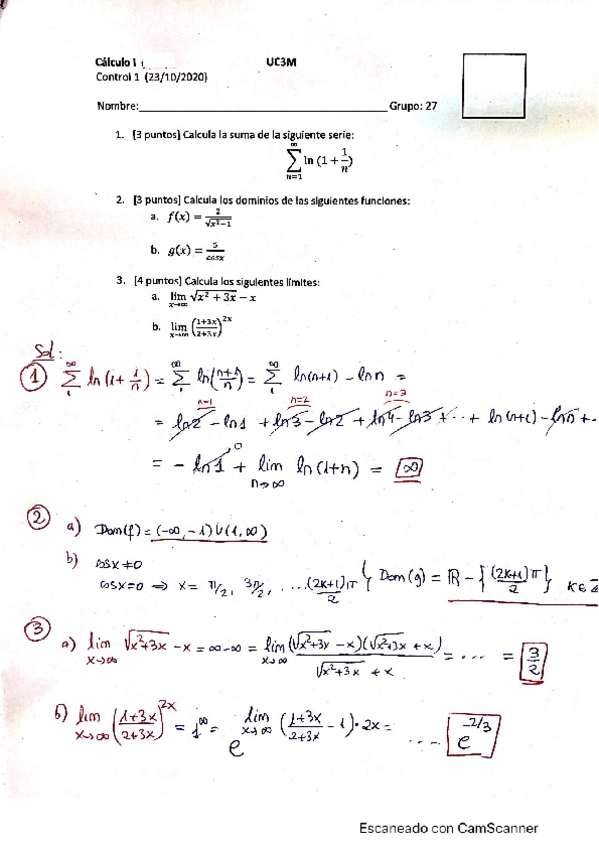 Cálculo I UC3M
Control 1 (23/10/2020)
Nombre:______________________ Grupo: 27
1. [3 puntos] Calcula la suma de la siguiente serie:
∑_{n=1}^{∞} ln (1 + 1/n)
2. [3 puntos] Calcula los dominios de las siguientes funciones:
a. f(x) = 2/√(x²−1)
b. g(x) = 3/cosx
3. [4 puntos] Calcula los siguientes límites:
a. lim_{x→∞} √(x² + 3x) − x
b. lim_{x→∞} ((1+3x)/(2+3x))^{2x}
Sol:
① ∑_{1}^{∞} ln(1 + 1/n) = ∑_{1}^{∞} ln((n+1)/n) = ∑_{1}^{∞} ln(n+1) − ln n =
n=1 n=2 n=3
= ln2 − ln1 + ln3 − ln2 + ln4 − ln3 + ... + ln(n+1) − ln n + ..
= − ln1 0 + lim_{n→∞} ln(1+n) = ∞
② a) Dom(f) = (−∞, −1) ∪ (1, ∞)
b) cosx ≠ 0
cosx = 0 ⇒ x = π/2, 3π/2, ... (2k+1)π/2 } Dom(g) = ℝ − {(2k+1)π/2} k ∈ ℤ
③ a) lim_{x→∞} √(x²+3x) − x = ∞ − ∞ = lim_{x→∞} (√(x²+3x) − x)(√(x²+3x) + x) / (√(x²+3x) + x) = ... = 3/2
b) lim_{x→∞} ((1+3x)/(2+3x))^{2x} = 1^∞ = e^{lim_{x→∞} ((1+3x)/(2+3x) − 1)·2x} = ... e^{−2/3}
Escaneado con CamScanner